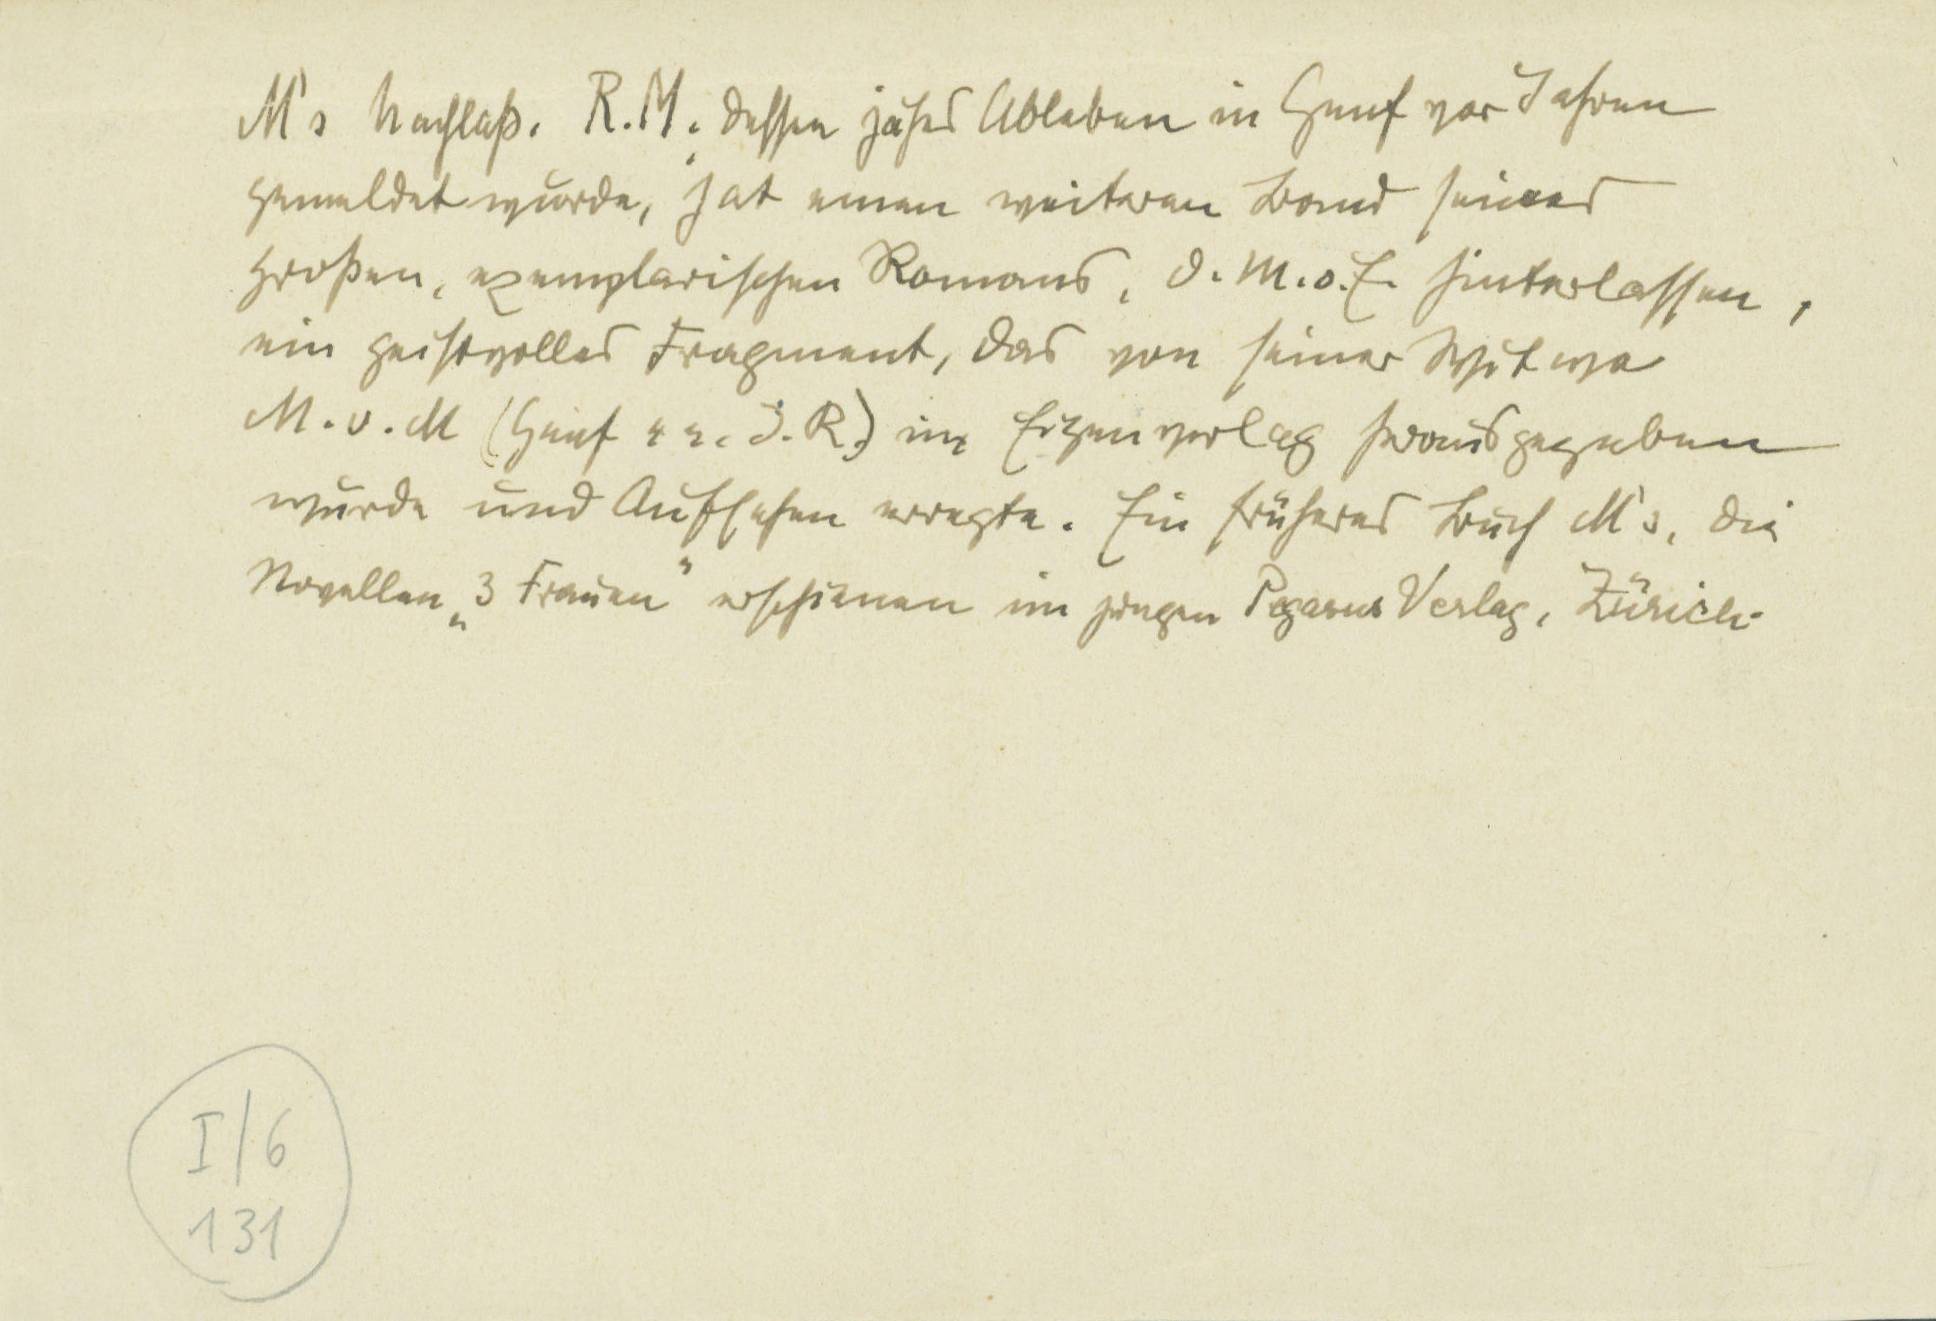 M's Nachlaß. R.M., dessen jähes Ableben in Genf vor Jahren
gemeldet wurde, hat einen weiteren Band seines
großen, exemplarischen Romans, D.M.o.E. hinterlassen,
ein geistvolles Fragment, das von seiner Witwe
M.v.M (Genf J.R.) im Eigenverlag herausgegeben
wurde und Aufsehen erregte. Ein früheres Buch M's, die
Novellen „3 Frauen" erschienen im jungen Pegasus Verlag, Zürich.
I/6
131